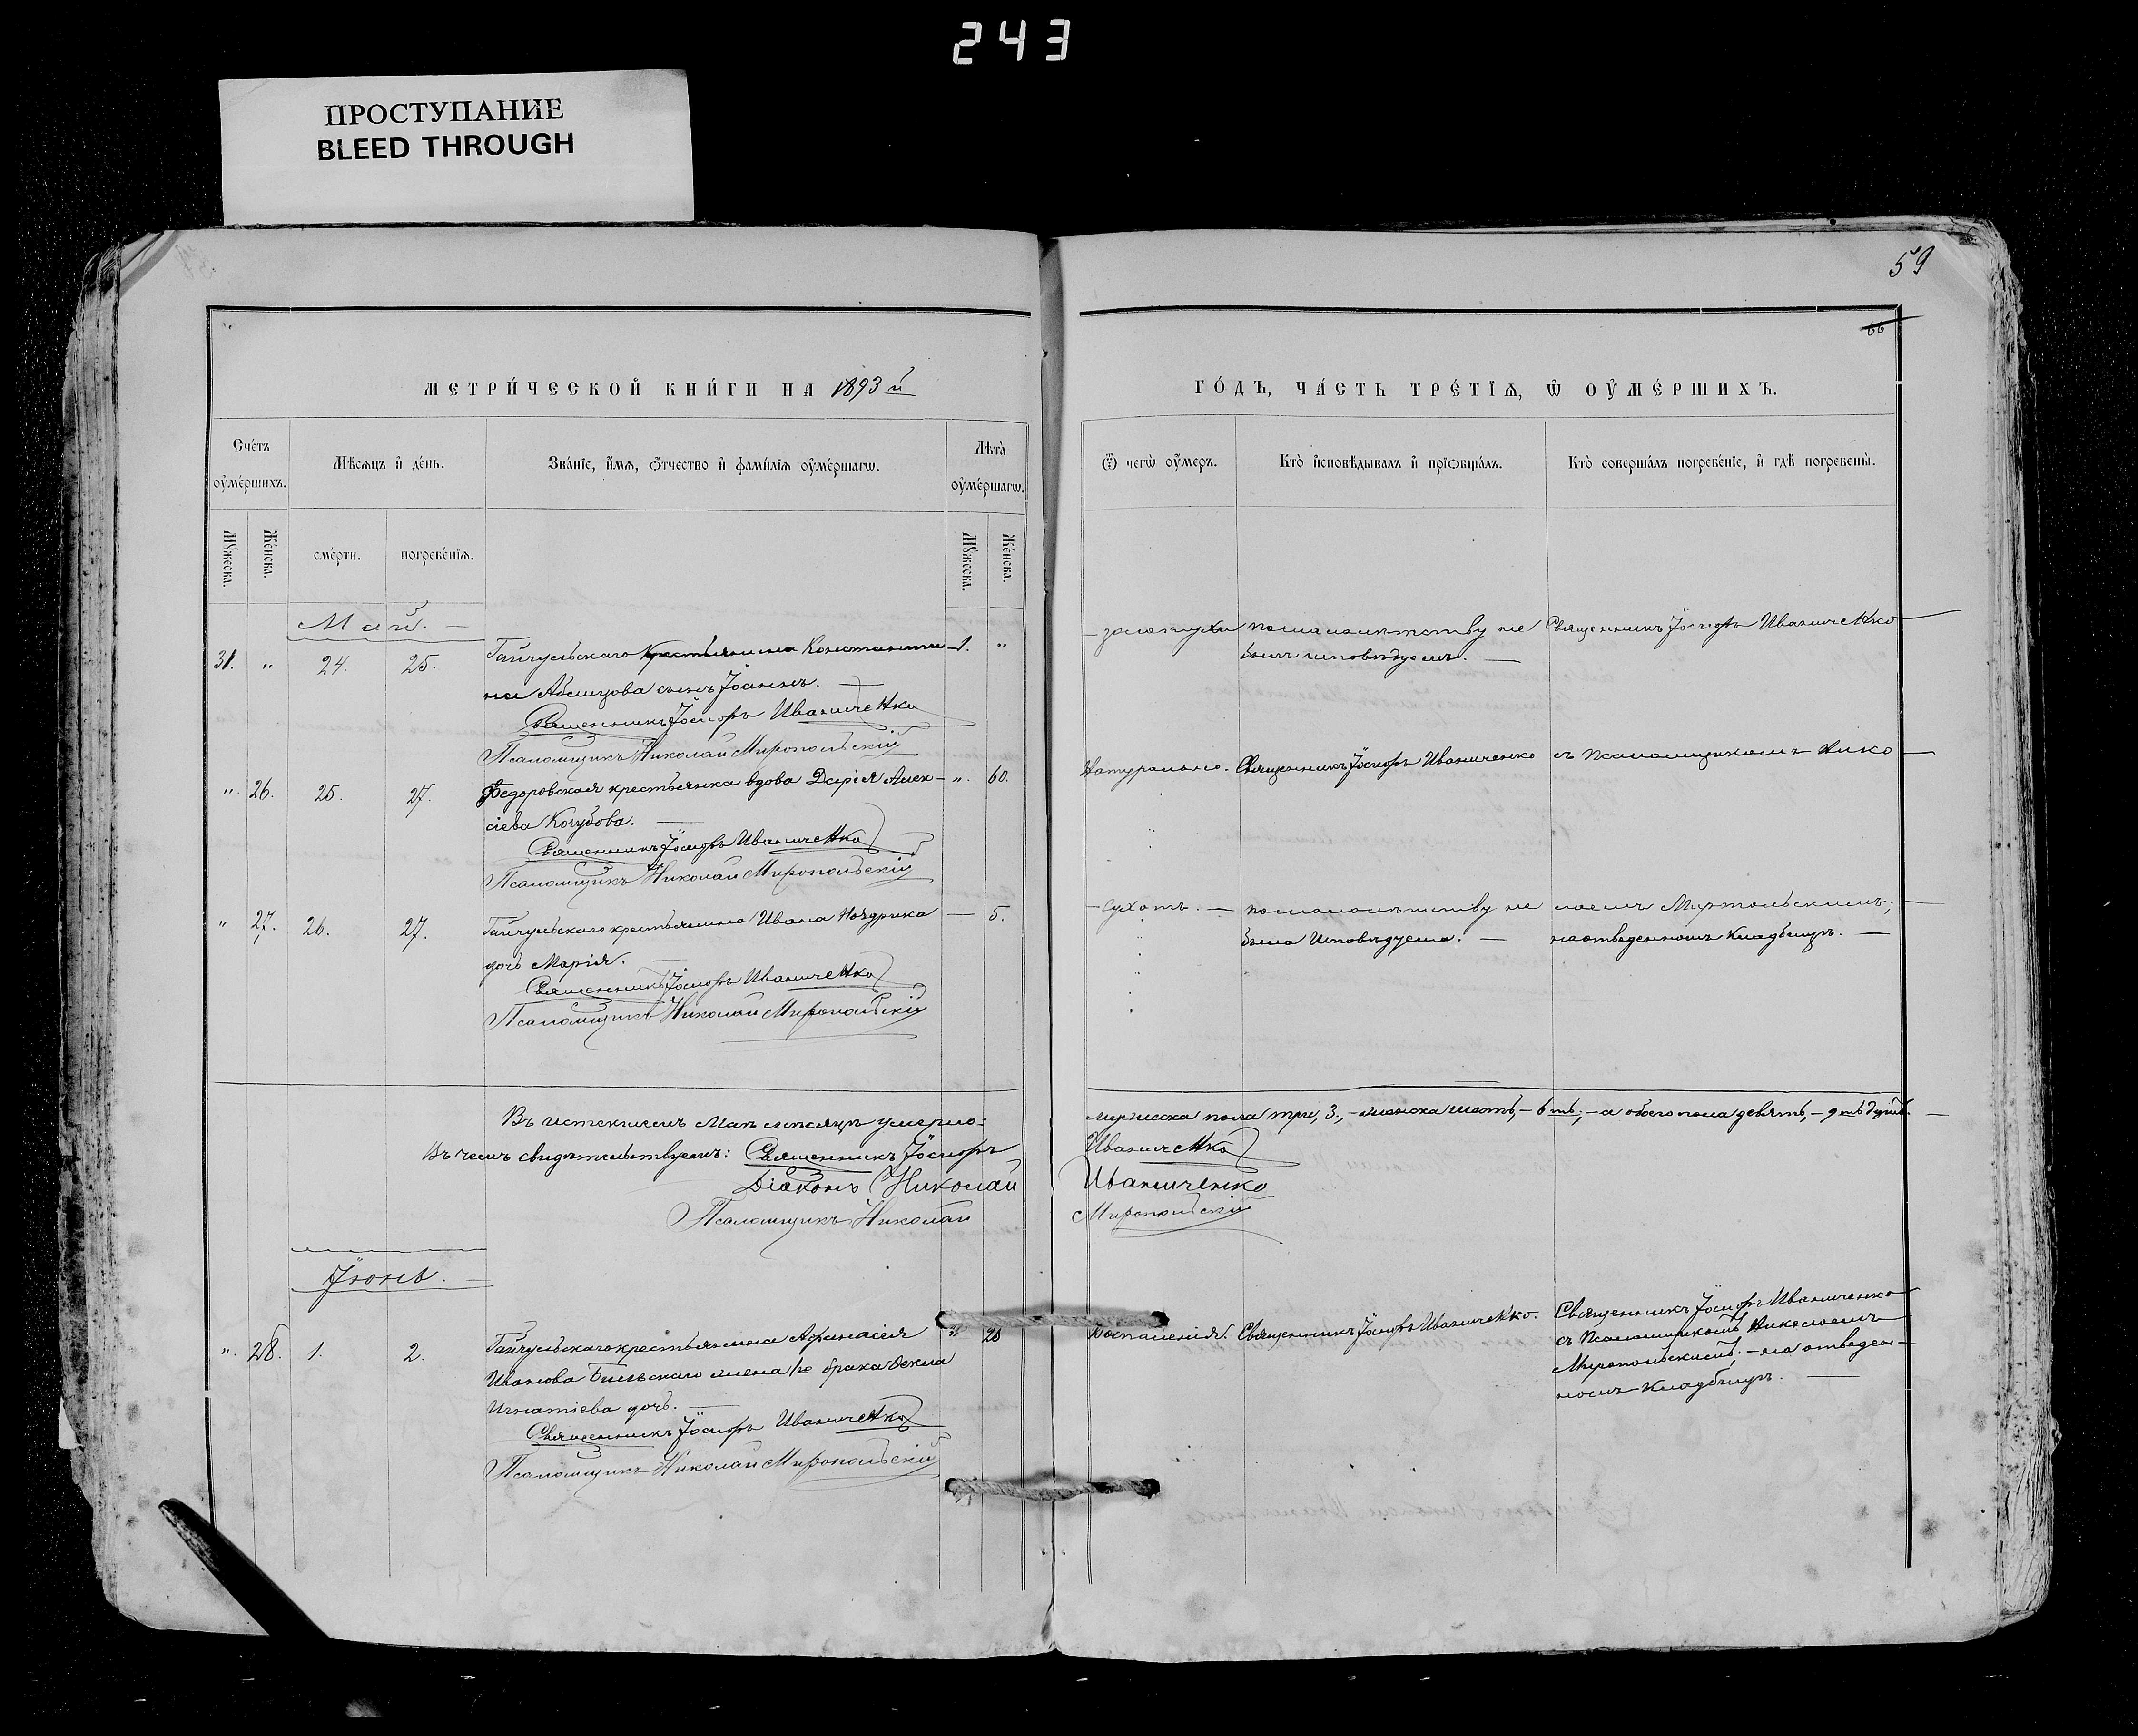 243
ПРОСТУПАНИЕ
BLEED THROUGH
59
66
МЕТРИ́ЧЕСКОЙ КНИ́ГИ НА 1893 й
ГО́ДЪ, ЧА́СТЬ ТРЕ́ТІѦ, Ѡ҆ ОУ҆МЕ́РШИХЪ.
Сче́тъ оу҆ме́ршихъ.
Мѣ́сѧцъ и҆ де́нь.
Зва́нїе, и҆́мѧ, ѻ҆́тчество и҆ фамі́лїѧ оу҆ме́ршагѡ.
Лѣ́та оу҆ме́ршагѡ.
Ѿ чегѡ̀ оу҆́меръ.
Кто̀ и҆сповѣ́дывалъ и҆ прїѡбща́лъ.
Кто̀ соверша́лъ погребе́нїе, и҆ гдѣ̀ погребены̀.
Мꙋ́жеска.
Же́нска.
сме́рти.
погребе́нїѧ.
Мꙋ́жеска.
Же́нска.
Май. —
31. " 24. 25. Гайчульскаго Крестьянина Константи- 1. "
на сынъ Іоаннъ. —
Священникъ Іосифъ Иваниченко
Псаломщикъ Николай Миропольскій
золотухи по малолѣтству не Священникъ Іосифъ Иваниченко
былъ исповѣдуемъ. —
". 26. 25. 27. Федоровская крестьянка вдова Дарія Алек- ". 60.
сіева Кочубова. —
Священникъ Іосифъ Иваниченко
Псаломщикъ Николай Миропольскій
Натурально. Священникъ Іосифъ Иваниченко съ Псаломщикомъ Нико
" 27. 26. 27. Гайчульскаго крестьянина Ивана Ноздрика — 5.
дочь Марія. —
Священникъ Іосифъ Иваниченко
Псаломщикъ Николай Миропольскій
Сухотъ. — по малолѣтству не лаемъ Миропольскимъ;
была Исповѣдуема. — на отведенномъ Кладбищѣ. —
Въ истекшемъ Маѣ мѣсяцѣ умерло:
мужеска пола три, 3., – женска шесть, – 6 ть; – а обоего пола девять, – 9 ть душъ. —
Въ чемъ свидѣтельствуемъ: Священникъ Іосифъ Иваниченко
Діаконъ Николай Иваниченко
Псаломщикъ Николай Миропольскій
Іюнь. —
". 28. 1. 2. Гайчульскаго крестьянина Афанасія " 28
Иванова жена 1го брака Ѳекла
Игнатіева дочь. —
Священникъ Іосифъ Иваниченко
Псаломщикъ Николай Миропольскій
Воспаленія. Священникъ Іосифъ Иваниченко. Священникъ Іосифъ Иваниченко
съ Псаломщикомъ Николаемъ
Миропольскимъ; – на отведен-
номъ Кладбищѣ. —